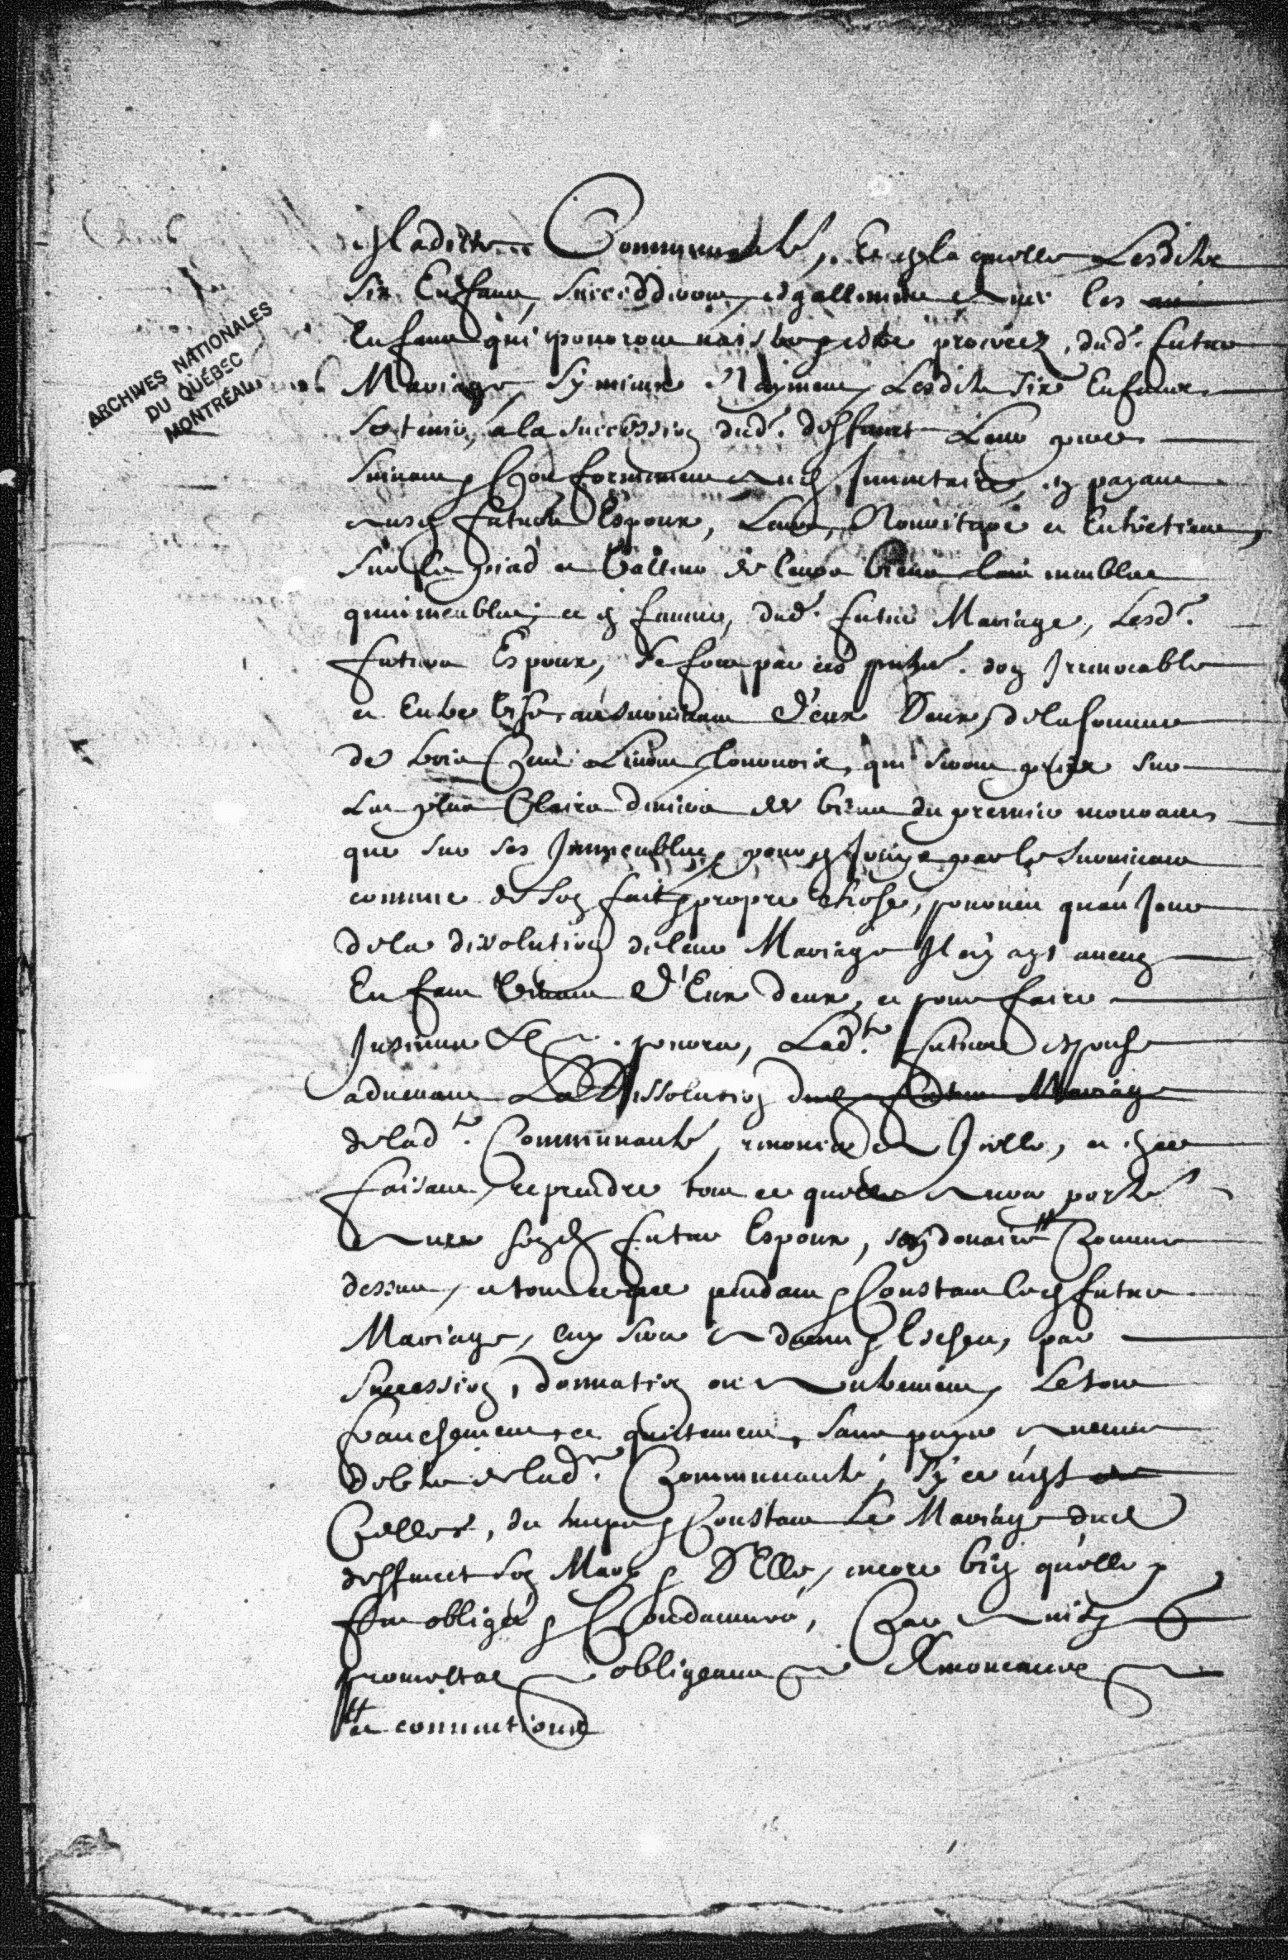 ARCHIVES NATIONALES
DU QUÉBEC
MONTRÉAL
en laditte Communauté, En laquelle Lesdits
six Enfans, succedderont, esgallement avec les
Enfans qui pourront naistre et estre procréez, dud. futur
Mariage, sy mieux N'ayment, Lesdits six Enfans
se tenir, a la succession dud. deffunct Leur pere
suivant & Conformement aud. Inventaire, en payant
ausd. futurs Espoux, Leurs, Nourriture et Entretiene,
sur le pied et Valleur de leurs biens meubles
qu'immeubles; et en faveur, dud. futur Mariage, Lesd.
futurs Espoux, se font par ces pntes. don Irrevocable
et Entre Vifs, au survivant d'eux Deux, de la somme
de trois Cent Livres tournois, qui seront pris sur
Les plus Clairs deniers des biens du premier mourant,
que sur ses Immeubles, pour en Jouir par le survivant
comme de son fait & propre chose, pourveu qu'au Jour
de la dissolution de leur Mariage Il n'y ayt aucuns
Enfans Vivans d'Eux deux, et pour faire
Insinuer & pourra, Lad.te future espouse
advenant La Dissolution dud. futur Mariage
de lad.te Communauté, renoncer a Icelle, et ce
faisant, reprendre tout ce qu'elle aura porté
avec sond. futur Espoux, son douaire Comme
dessus, et tout ce que pendant & Constant led. futur
Mariage, luy sera advenu & Escheu, par
succession, donnation ou autrement, Le tout
franchement et quittement, sans payer aucunes
debtes de lad.te Communauté, sy ce n'est
Celles, du temps & Constant Le Mariage dud.
deffunct son Mary & D'Elle, encore bien qu'elle y
fut obligée & Condamnée, Car ainsy
promettant obligeant Renonceant
et conventions